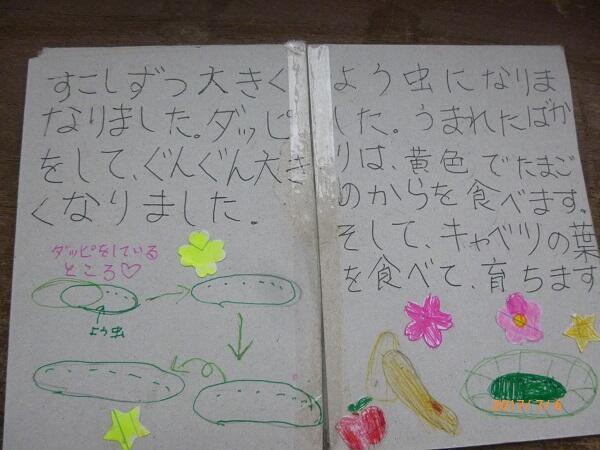 すこしずつ大きく
なりました。ダッピ
をして、ぐんぐん大き
くなりました。
ダッピをしている
ところ♡
よう虫
よう虫になりま
した。うまれたばか
りは、黄色でたまご
のからを食べます。
そして、キャベツの葉
を食べて、育ちます